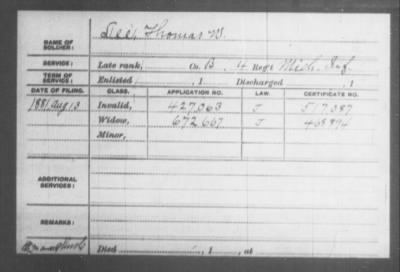 NAME OF SOLDIER: Dell, Thomas W.
SERVICE: Late rank, Co. B, 4 Reg't Mich. Inf.
TERM OF SERVICE: Enlisted , 1 Discharged , 1
DATE OF FILING. CLASS. APPLICATION NO. LAW. CERTIFICATE NO.
1881 Aug 13 Invalid, 427,063 J 517,387
Widow, 672,667 J 468,894
Minor,
ADDITIONAL SERVICES:
REMARKS:
Died , 1 , at